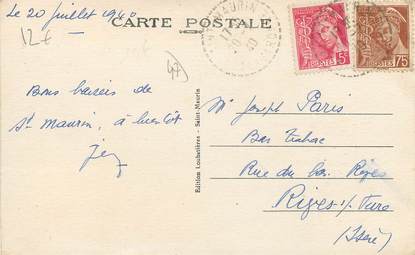 Le 20 juillet 1940
CARTE POSTALE
12 F
47
MAURIN
5c
POSTES
75
Bons baisers de
St Maurin, à bientôt
Edition Loubatières - Saint-Maurin
Mr Joseph Paris
Bar Tabac
Rue du
Rives s/ Fure
(Isère)